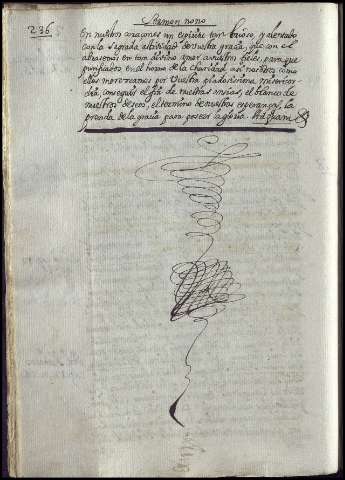 236
Sermon nono
En nuestros corazones un espiritu tan brioso, y alentado
con la sagrada actividad de vuestra gracia, que con el
abrasemos en tan divino amor a vuestros fieles, para que
purificados en el horno de la charidad, asi nosotros como
ellos merezcamos por vuestra piadosisima misericor-
dia, conseguir el fin de nuestras ansias, el blanco de
nuestros deseos, el termino de nuestras esperanzas, la
prenda de la gracia para poseer la gloria. Ad quam &